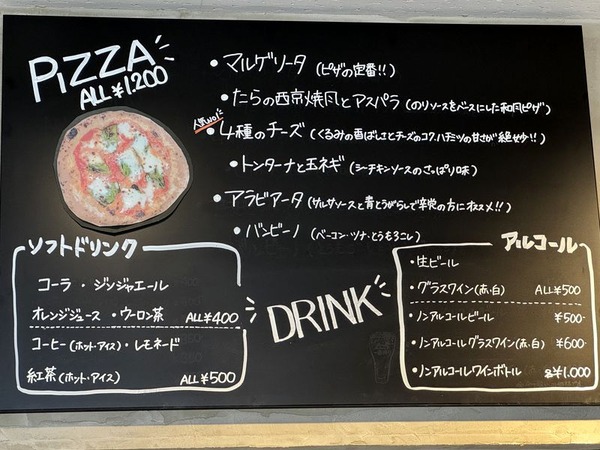 PIZZA
ALL ¥1.200
・マルゲリータ (ピザの定番!!)
・たらの西京焼風とアスパラ (のりソースをベースにした和風ピザ)
人気No1
・4種のチーズ (くるみの香ばしさとチーズのコク、ハチミツの甘さが絶妙!!)
・トンターナと玉ネギ (シーチキンソースのさっぱり味)
・アラビアータ (サルサソースと青とうがらしで辛党の方にオススメ!!)
・バンビーノ (ベーコン・ツナ・とうもろこし)
ソフトドリンク
コーラ ・ ジンジャエール
オレンジジュース ・ ウーロン茶 ALL ¥400
コーヒー(ホット・アイス)・レモネード
紅茶(ホット・アイス) ALL ¥500
DRINK
アルコール
・生ビール
・グラスワイン(赤、白) ALL ¥500
・ノンアルコールビール ¥500-
・ノンアルコールグラスワイン(赤、白) ¥600-
・ノンアルコールワインボトル 各¥1.000